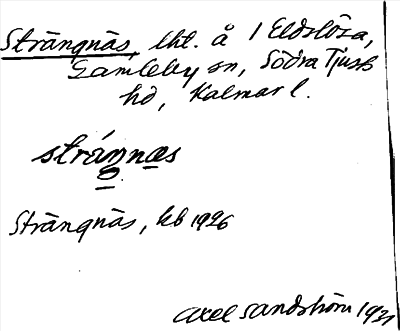 Strängnäs, lht. å 1 Eldslösa,
Gamleby sn, Södra Tjust
hd, Kalmar l.
stráŋnæs
Strängnäs, kb 1926
Axel Sandström 1931